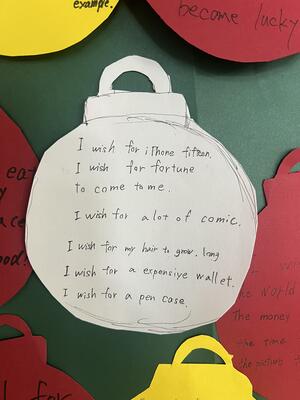 example.
become lucky
I wish for iPhone fifteen.
I wish for fortune
to come to me.
I wish for a lot of comic.
I wish for my hair to grow. long
I wish for a expensive wallet.
I wish for a pen case.
The money
the time
the picture
for